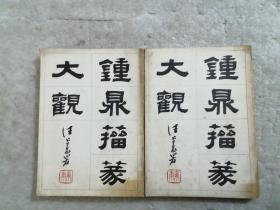 鍾鼎籀篆
大觀
鍾鼎籀篆
大觀